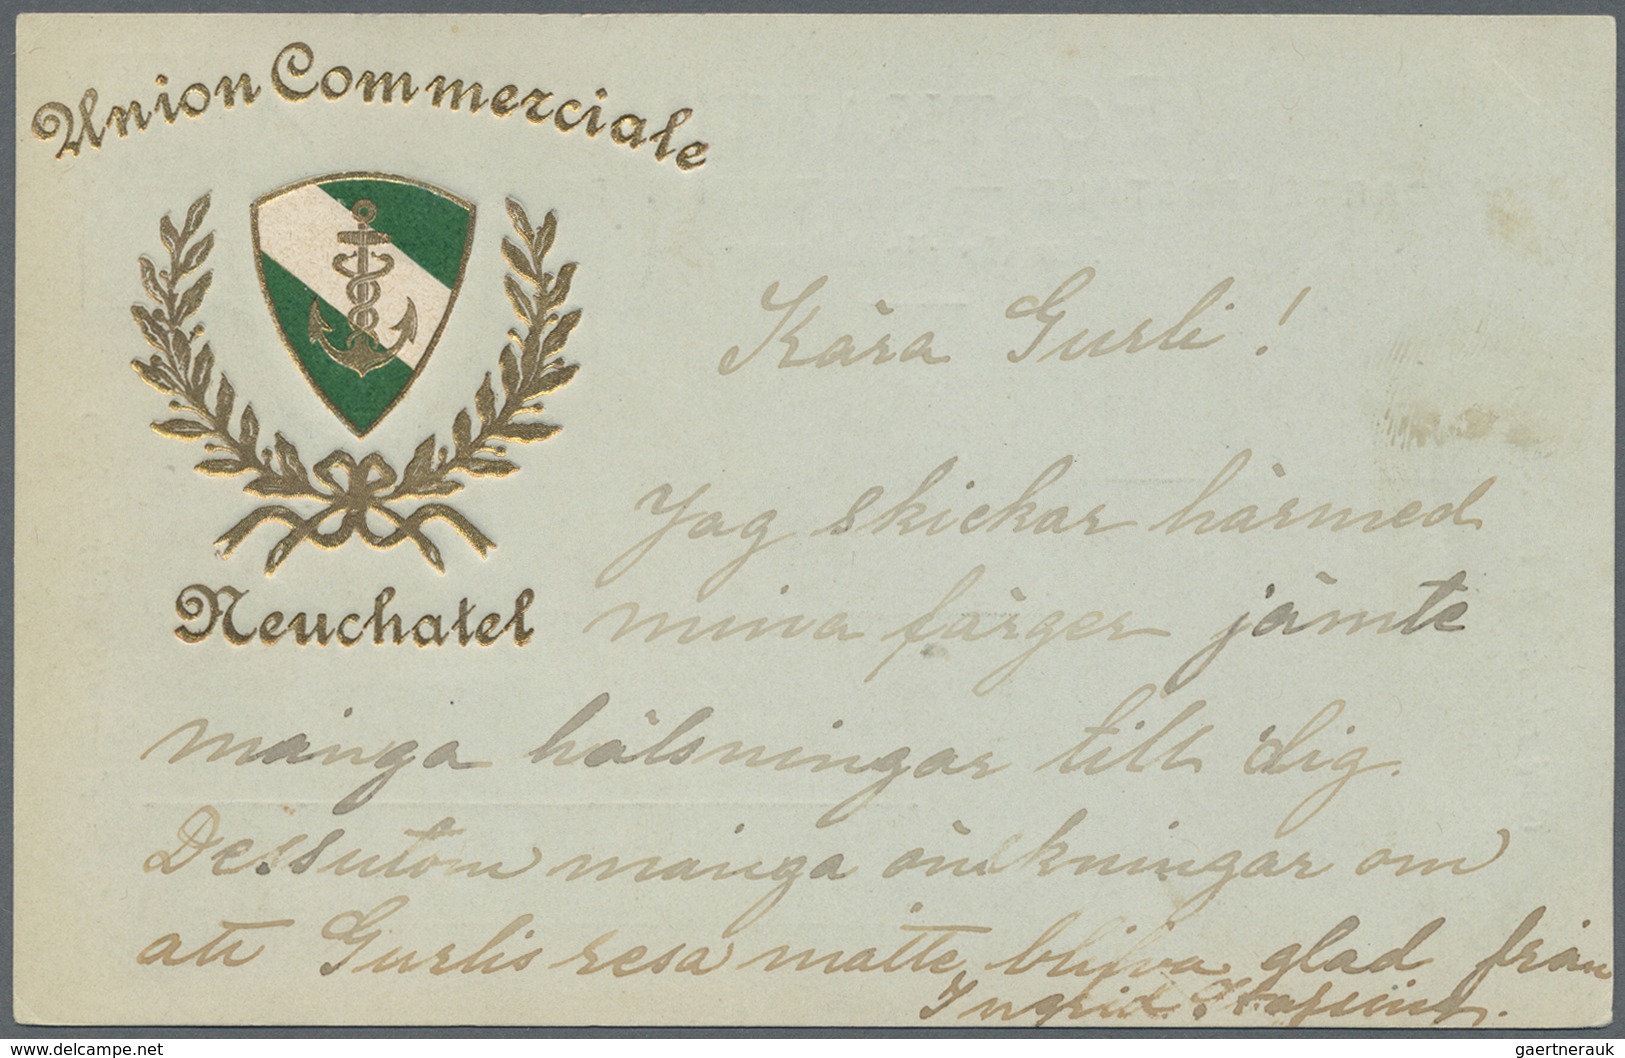 Union Commerciale
Neuchatel
Kära Gurli!
Jag skickar härmed
mina färger jämte
många hälsningar till dig.
Dessutom många önskningar om
att Gurlis resa måtte blifva glad från
Ingrid
delcampe.net
gaertnerauk